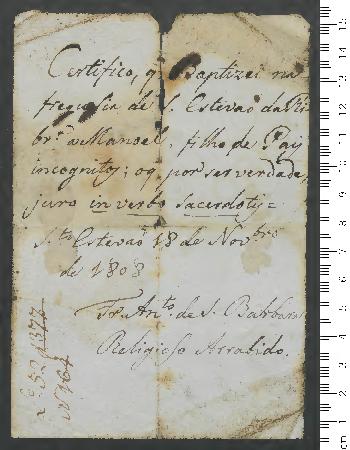 Certifico, q. Baptizei na
freguesia de S. Estevaõ da Ri
br.ª a Manoel, filho de Pay
incognito; o q. por ser verdade,
juro in verbo sacerdotis =
S.to Estevaõ 18 de Nov.bro
de 1808
Fr. An.to de S. Barbara
Religioso Arrabido.